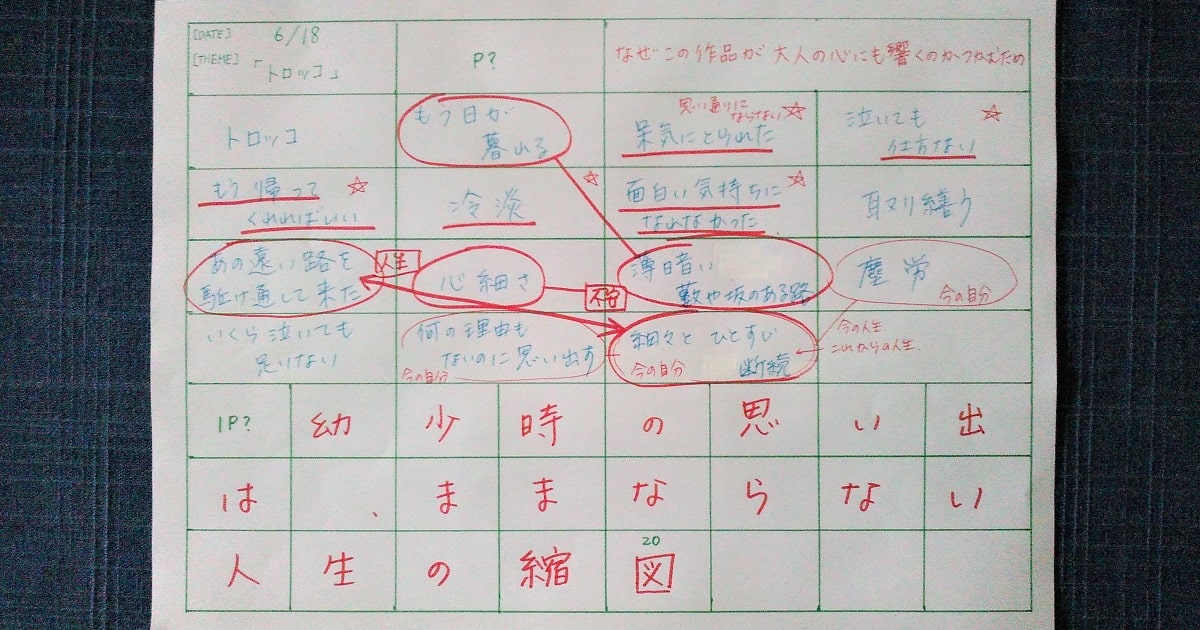 [DATE] 6/18
[THEME] 「トロッコ」
P?
なぜこの作品が大人の心にも響くのかつかむため
トロッコ
もう日が
暮れる
思い通りに
ならない☆
呆気にとられた
泣いても ☆
仕方ない
もう帰って ☆
くれればいい
冷淡 ☆
面白い気持ちに ☆
なれなかった
取り繕う
あの遠い路を
駈け通して来た
人生
心細さ
不安
薄暗い
藪や坂のある路
塵労
今の自分
いくら泣いても
足りない
何の理由も
ないのに思い出す
今の自分
細々とひとすじ
断続
今の自分
今の人生
これからの人生
1P? 幼少時の思い出
は、ままならない
20
人生の縮図